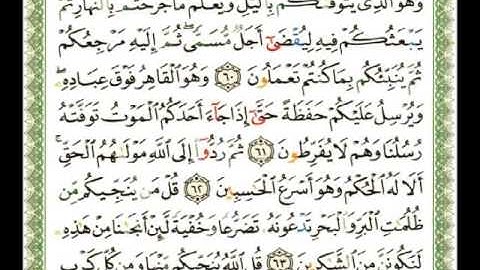 وَهُوَ ٱلَّذِى يَتَوَفَّىٰكُم بِٱلَّيْلِ وَيَعْلَمُ مَا جَرَحْتُم بِٱلنَّهَارِ ثُمَّ
يَبْعَثُكُمْ فِيهِ لِيُقْضَىٰٓ أَجَلٌ مُّسَمًّى ۖ ثُمَّ إِلَيْهِ مَرْجِعُكُمْ
ثُمَّ يُنَبِّئُكُم بِمَا كُنتُمْ تَعْمَلُونَ ٦٠ وَهُوَ ٱلْقَاهِرُ فَوْقَ عِبَادِهِۦ ۖ
وَيُرْسِلُ عَلَيْكُمْ حَفَظَةً حَتَّىٰٓ إِذَا جَآءَ أَحَدَكُمُ ٱلْمَوْتُ تَوَفَّتْهُ
رُسُلُنَا وَهُمْ لَا يُفَرِّطُونَ ٦١ ثُمَّ رُدُّوٓا۟ إِلَى ٱللَّهِ مَوْلَىٰهُمُ ٱلْحَقِّ ۚ
أَلَا لَهُ ٱلْحُكْمُ وَهُوَ أَسْرَعُ ٱلْحَٰسِبِينَ ٦٢ قُلْ مَن يُنَجِّيكُم مِّن
ظُلُمَٰتِ ٱلْبَرِّ وَٱلْبَحْرِ تَدْعُونَهُۥ تَضَرُّعًا وَخُفْيَةً لَّئِنْ أَنجَىٰنَا مِنْ هَٰذِهِۦ
لَنَكُونَنَّ مِنَ ٱلشَّٰكِرِينَ ٦٣ قُلِ ٱللَّهُ يُنَجِّيكُم مِّنْهَا وَمِن كُلِّ كَرْبٍ